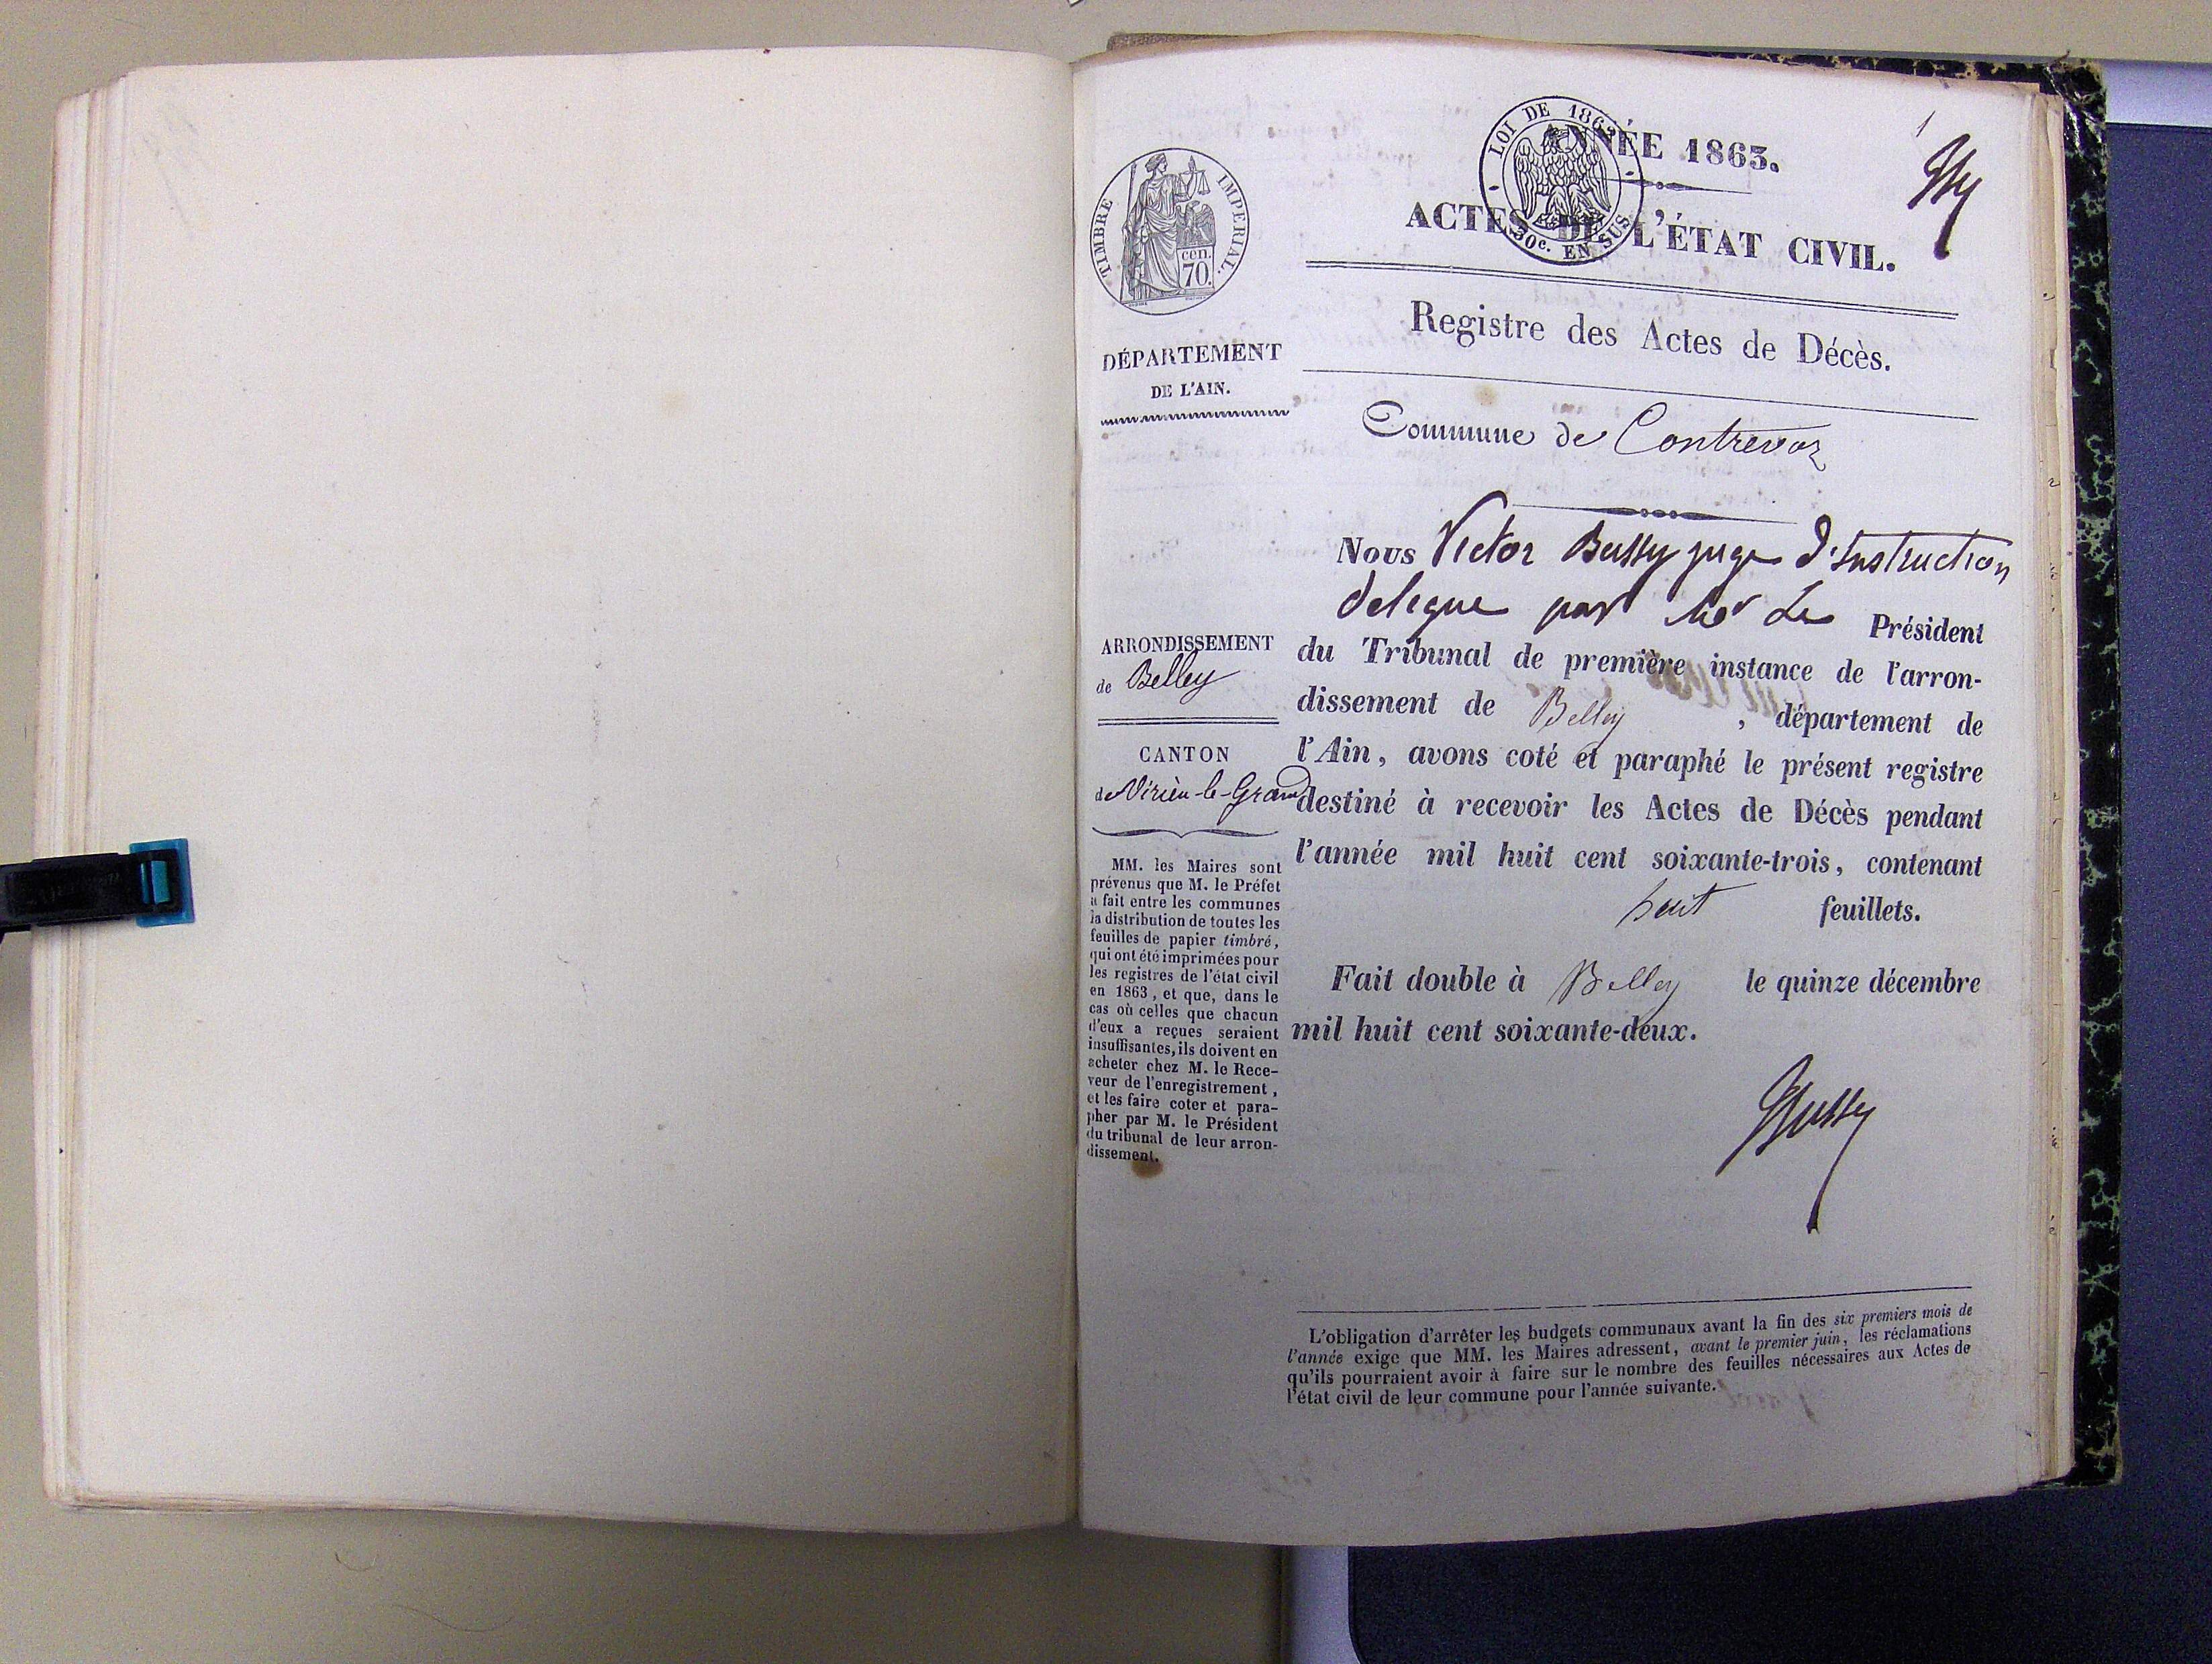 1
LOI DE 1862
30c. EN SUS
TIMBRE IMPERIAL.
cen.
70.
ANNÉE 1863.
ACTES DE L'ÉTAT CIVIL.
Registre des Actes de Décès.
DÉPARTEMENT
DE L'AIN.
Commune de Contrevoz
ARRONDISSEMENT
de Belley
CANTON
de Virieu-le-Grand
MM. les Maires sont
prévenus que M. le Préfet
a fait entre les communes
la distribution de toutes les
feuilles de papier timbré,
qui ont été imprimées pour
les registres de l'état civil
en 1863, et que, dans le
cas où celles que chacun
d'eux a reçues seraient
insuffisantes, ils doivent en
acheter chez M. le Rece-
veur de l'enregistrement,
et les faire coter et para-
pher par M. le Président
du tribunal de leur arron-
dissement.
Nous Victor Bussy juge d'Instruction
delegue par Mr Le Président
du Tribunal de première instance de l'arron-
dissement de Belley, département de
l'Ain, avons coté et paraphé le présent registre
destiné à recevoir les Actes de Décès pendant
l'année mil huit cent soixante-trois, contenant
huit feuillets.
Fait double à Belley le quinze décembre
mil huit cent soixante-deux.
Bussy
L'obligation d'arrêter les budgets communaux avant la fin des six premiers mois de
l'année exige que MM. les Maires adressent, avant le premier juin, les réclamations
qu'ils pourraient avoir à faire sur le nombre des feuilles nécessaires aux Actes de
l'état civil de leur commune pour l'année suivante.